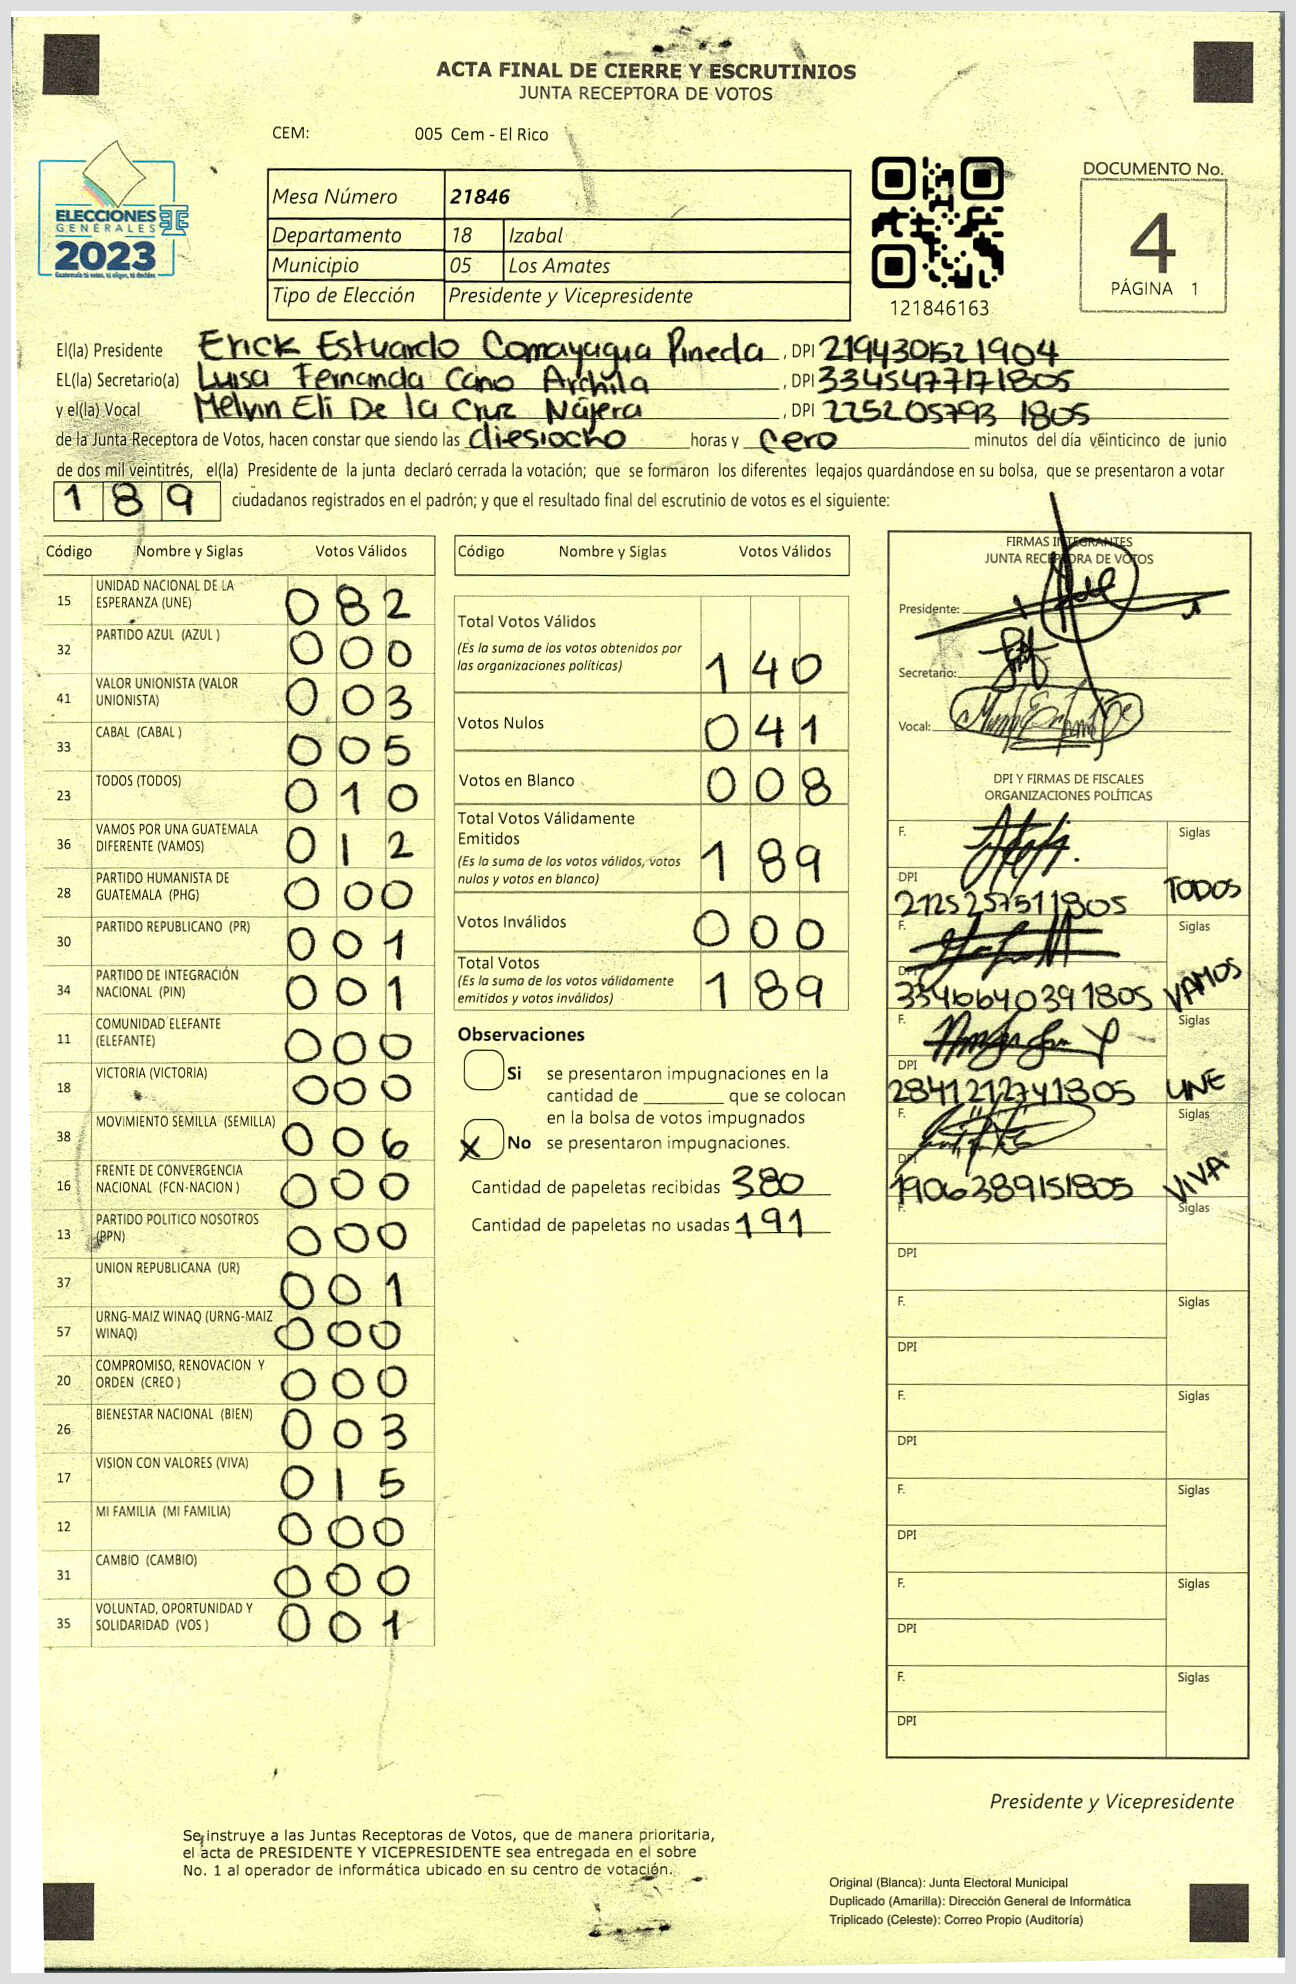 ACTA FINAL DE CIERRE Y ESCRUTINIOS
JUNTA RECEPTORA DE VOTOS
CEM: 005 Cem - El Rico
ELECCIONES
GENERALES
2023
Guatemala tú votas, tú eliges, tú decides
Mesa Número 21846
Departamento 18 Izabal
Municipio 05 Los Amates
Tipo de Elección Presidente y Vicepresidente
121846163
DOCUMENTO No.
4
PÁGINA 1
El(la) Presidente Erick Estuardo Comayagua Pineda , DPI 2194301521904
EL(la) Secretario(a) Luisa Fernanda Cano Archila , DPI 3345477171805
y el(la) Vocal Melvin Eli De la Cruz Nájera , DPI 225205793 1805
de la Junta Receptora de Votos, hacen constar que siendo las diesiocho horas y cero minutos del día veinticinco de junio
de dos mil veintitrés, el(la) Presidente de la junta declaró cerrada la votación; que se formaron los diferentes legajos guardándose en su bolsa, que se presentaron a votar
189 ciudadanos registrados en el padrón; y que el resultado final del escrutinio de votos es el siguiente:
Código Nombre y Siglas Votos Válidos
15 UNIDAD NACIONAL DE LA ESPERANZA (UNE) 082
32 PARTIDO AZUL (AZUL ) 000
41 VALOR UNIONISTA (VALOR UNIONISTA) 003
33 CABAL (CABAL ) 005
23 TODOS (TODOS) 010
36 VAMOS POR UNA GUATEMALA DIFERENTE (VAMOS) 012
28 PARTIDO HUMANISTA DE GUATEMALA (PHG) 000
30 PARTIDO REPUBLICANO (PR) 001
34 PARTIDO DE INTEGRACIÓN NACIONAL (PIN) 001
11 COMUNIDAD ELEFANTE (ELEFANTE) 000
18 VICTORIA (VICTORIA) 000
38 MOVIMIENTO SEMILLA (SEMILLA) 006
16 FRENTE DE CONVERGENCIA NACIONAL (FCN-NACION ) 000
13 PARTIDO POLITICO NOSOTROS (PPN) 000
37 UNION REPUBLICANA (UR) 001
57 URNG-MAIZ WINAQ (URNG-MAIZ WINAQ) 000
20 COMPROMISO, RENOVACION Y ORDEN (CREO ) 000
26 BIENESTAR NACIONAL (BIEN) 003
17 VISION CON VALORES (VIVA) 015
12 MI FAMILIA (MI FAMILIA) 000
31 CAMBIO (CAMBIO) 000
35 VOLUNTAD, OPORTUNIDAD Y SOLIDARIDAD (VOS ) 001
Código Nombre y Siglas Votos Válidos
Total Votos Válidos
(Es la suma de los votos obtenidos por las organizaciones políticas) 140
Votos Nulos 041
Votos en Blanco 008
Total Votos Válidamente Emitidos
(Es la suma de los votos válidos, votos nulos y votos en blanco) 189
Votos Inválidos 000
Total Votos
(Es la suma de los votos válidamente emitidos y votos inválidos) 189
Observaciones
Si se presentaron impugnaciones en la
cantidad de ________ que se colocan
en la bolsa de votos impugnados
X No se presentaron impugnaciones.
Cantidad de papeletas recibidas 380
Cantidad de papeletas no usadas 191
FIRMAS INTEGRANTES
JUNTA RECEPTORA DE VOTOS
Presidente:
Secretario:
Vocal:
DPI Y FIRMAS DE FISCALES
ORGANIZACIONES POLÍTICAS
F. Siglas
DPI 2125257511805 TODOS
F. Siglas
DPI 3346664039 1805 VAMOS
F. Siglas
DPI 2841212741805 UNE
F. Siglas
DPI 1906389151805 VIVA
F. Siglas
DPI
F. Siglas
DPI
F. Siglas
DPI
F. Siglas
DPI
F. Siglas
DPI
F. Siglas
DPI
Presidente y Vicepresidente
Se instruye a las Juntas Receptoras de Votos, que de manera prioritaria,
el acta de PRESIDENTE Y VICEPRESIDENTE sea entregada en el sobre
No. 1 al operador de informática ubicado en su centro de votación.
Original (Blanca): Junta Electoral Municipal
Duplicado (Amarilla): Dirección General de Informática
Triplicado (Celeste): Correo Propio (Auditoría)